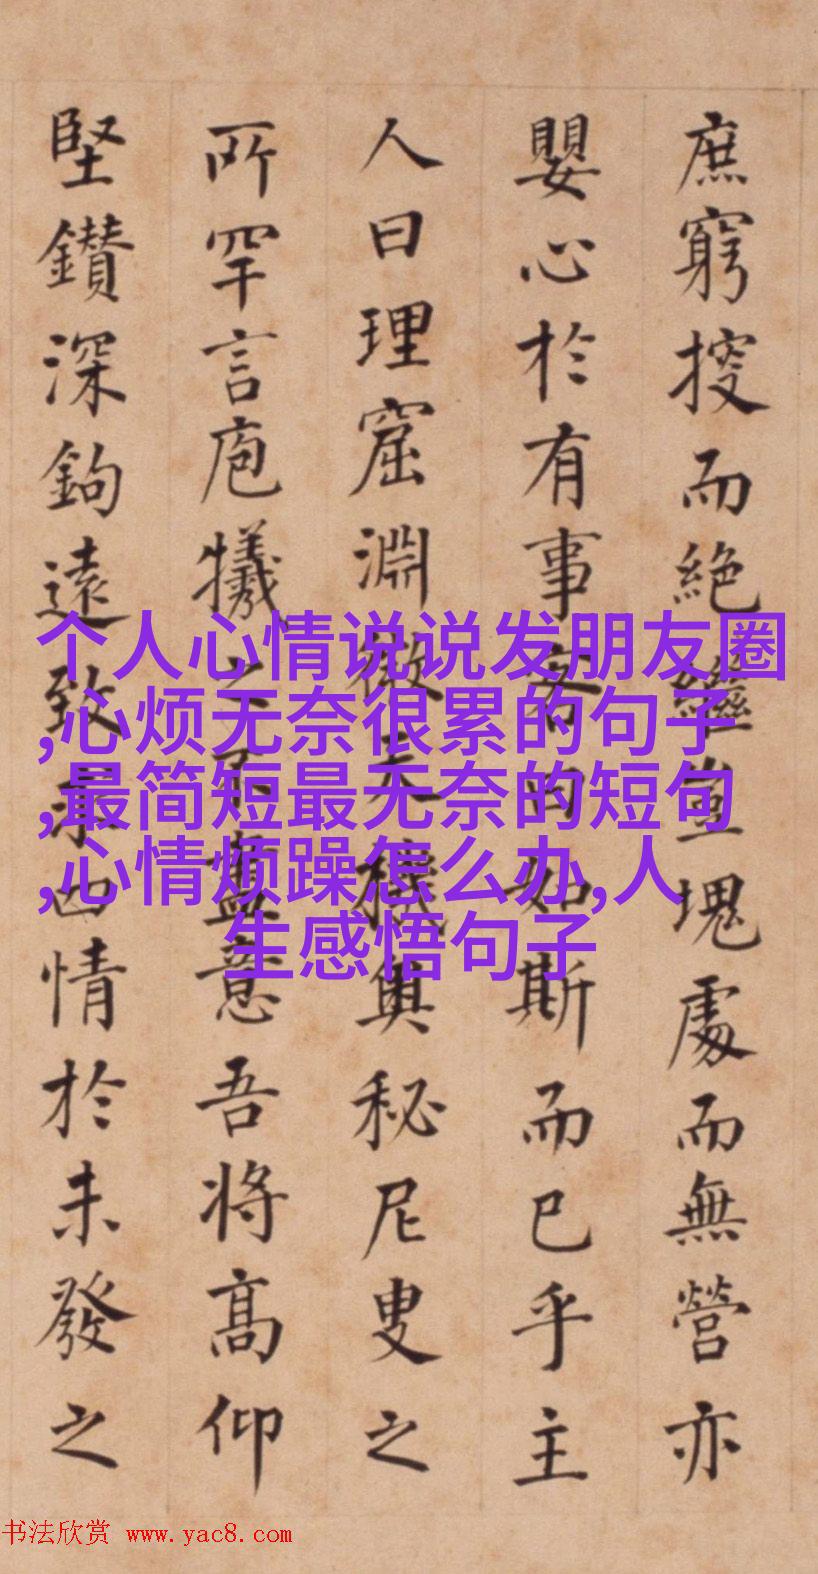 庶窮搜而絕繼豈塊處而無營亦
嬰心於有事客曰如斯而已乎主
人曰理窟淵微天機奧秘尼叟之
所罕言庖犧之不盡意吾將高仰
堅鑽深鉤遠致求四情於未發之
个人心情说说发朋友圈
,心烦无奈很累的句子
,最简短最无奈的短句
,心情烦躁怎么办,人
生感悟句子
书法欣赏 www.yac8.com